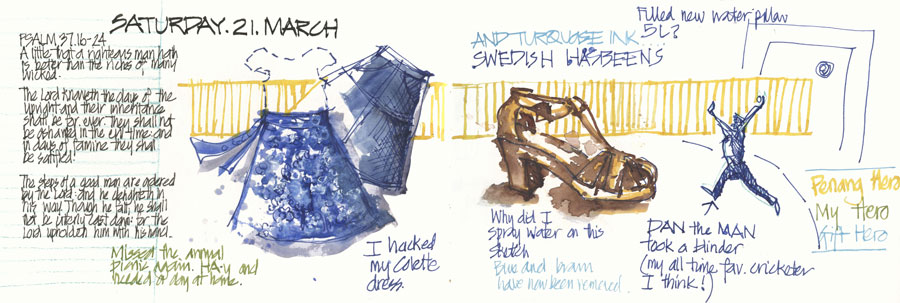 SATURDAY. 21. MARCH
PSALM 37. 16-24
A little that a righteous man hath
is better than the riches of many
wicked.
The Lord knoweth the days of the
upright and their inheritance
shall be for ever. They shall not
be ashamed in the evil time: and
in days of famine they shall
be satisfied.
The steps of a good man are ordered
by the Lord: and he delighteth in
his way. Though he fall, he shall
not be utterly cast down: for the
Lord upholdeth him with his hand.
Missed the annual
picnic again. and
needed a day at home.
I hacked
my Colette
dress.
AND TURQUOISE INK
SWEDISH HASBEENS
Why did I
spray water on this
sketch
Blue and brown
have now been removed.
Filled new water
5L?
DAN the MAN
took a blinder
(my all time fav. cricketer
I think!)
Penang Hero
My Hero
Hero